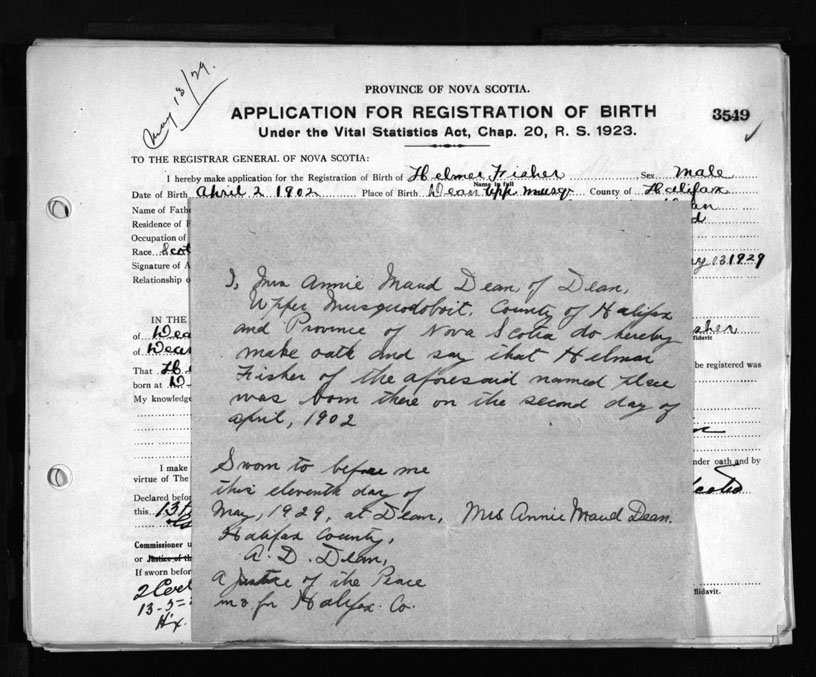 May 13/29.
PROVINCE OF NOVA SCOTIA.
APPLICATION FOR REGISTRATION OF BIRTH
3549
Under the Vital Statistics Act, Chap. 20, R. S. 1923.
TO THE REGISTRAR GENERAL OF NOVA SCOTIA:
I hereby make application for the Registration of Birth of Helmer Fisher, Sex Male
Name in full
Date of Birth April 2 1902 Place of Birth Dean Upp. Musqr. County of Halifax
Name of Fathe
Residence of F
Occupation of
Race Scot
Signature of A 13 1929
Relationship o
I, Mrs Annie Maud Dean of Dean,
Upper Musquodoboit, County of Halifax
and Province of Nova Scotia do hereby
make oath and say that Helmar
Fisher of the aforesaid named place
was born there on the second day of
april, 1902
Sworn to before me
this eleventh day of
May, 1929, at Dean, Mrs Annie Maud Dean.
Halifax County,
A. D. Dean,
a Justice of the Peace
in & for Halifax Co.
IN THE
of Dea
of Dean
fidavit
That He be registered was
born at D
My knowledge
I make nder oath and by
virtue of The
Declared befor
this 13
Commissioner u
or Justice of th
If sworn befor
fidavit.
13-5-
Hx.